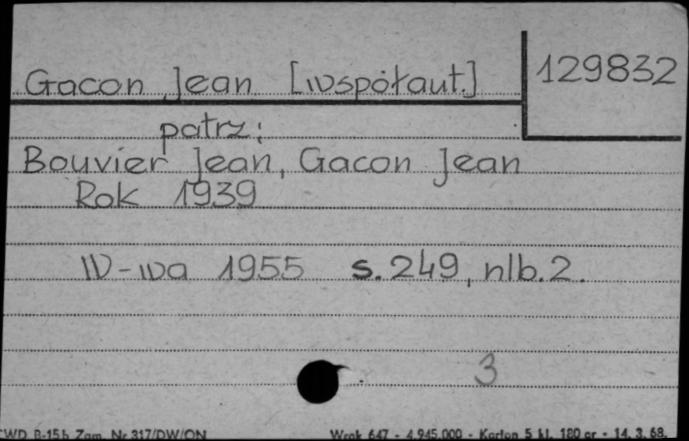 Gacon Jean [współaut.] 129832
patrz:
Bouvier Jean, Gacon Jean
Rok 1939
W-wa 1955 s. 249, nlb. 2.
3
CWD B-15b Zam. Nr 317/DW/ON Wrok 647 - 4.945.000 - Karton 5 kl. 180 gr - 14. 3. 68.